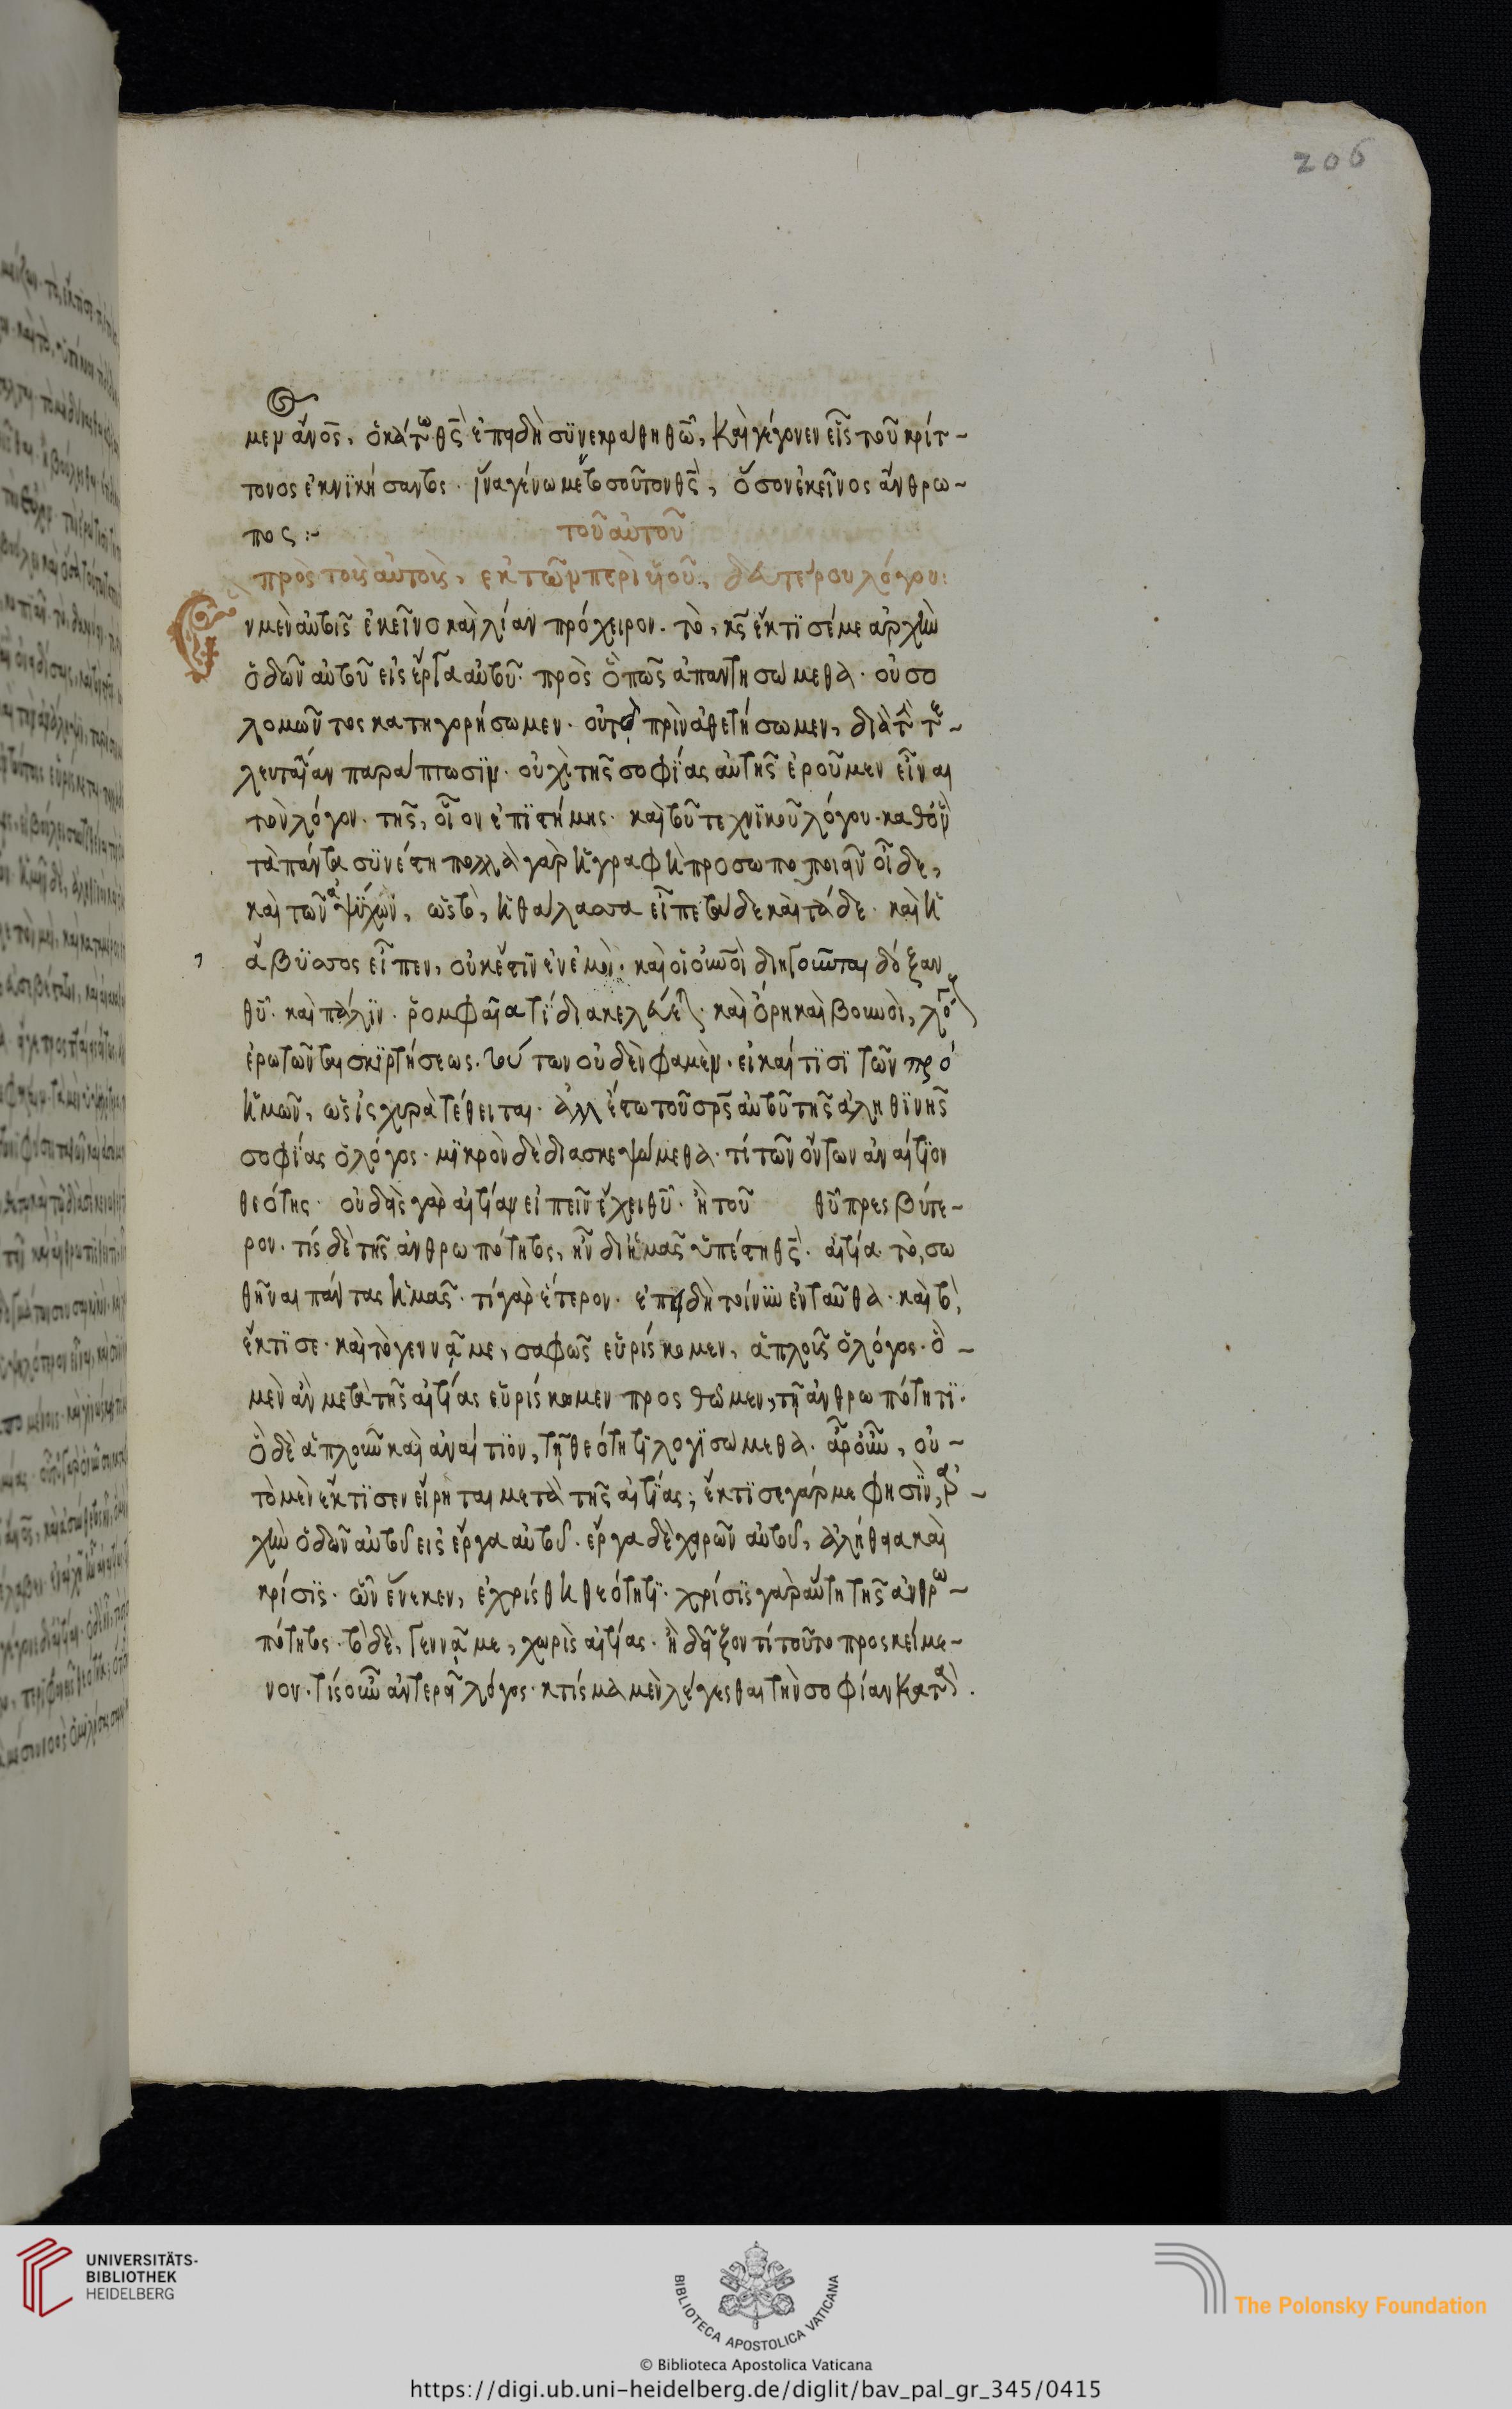 206
μεν ἄνο̅ς, ὁ κάτω θς̅ ἐπειδὴ συνεκράθη θῶ̅, καὶ γέγονεν εἷς τοῦ κρίτ-
τονος ἐκνικήσαντος. ἵνα γένωμαι τοσοῦτον θς̅, ὅσον ἐκεῖνος ἄνθρω-
πος :~ τοῦ αὐτοῦ
πρὸς τοὺς αὐτοὺς, ἐκ τῶν περὶ υἱοῦ, δευτέρου λόγου:
Ἓν μὲν αὐτοῖς ἐκεῖνο καὶ λίαν πρόχειρον. τὸ, κς̅ ἔκτισέ με ἀρχὴν
ὁδῶν αὐτοῦ εἰς ἔργα αὐτοῦ. πρὸς ὃ πῶς ἀπαντησώμεθα. οὐ σο
λομῶντος κατηγορήσωμεν. οὐ τὰ πρὶν ἀθετήσωμεν, διὰ τὴν τε-
λευταίαν παράπτωσιν. οὐχὶ τῆς σοφίας αὐτῆς ἐροῦμεν εἶναι
τὸν λόγον. τῆς, οἷον ἐπιστήμης. καὶ τοῦ τεχνικοῦ λόγου. καθ' ὃν
τὰ πάντα συνέστη πολλὰ γὰρ ἡ γραφὴ προσωποποιεῖν οἶδε,
καὶ τῶν ἀψύχων, ὡς τὸ, ἡ θάλασσα εἶπε τάδε καὶ τάδε. καὶ ἡ
ἄβυσσος εἶπεν, οὐκ ἔστιν ἐν ἐμοὶ. καὶ οἱ οὐνοὶ διηγοῦνται δόξαν
θῦ̅. καὶ πάλιν. ῥομφαία τί διακελεύεται. καὶ ὄρη καὶ βουνοὶ, λόγους
ἐρωτῶνται σκιρτήσεως. τούτων οὐδὲν φαμὲν. εἰ καί τισι τῶν πρὸ
ἡμῶν, ὡς ἰσχυρὰ τέθειται. ἀλλ' ἔστω τοῦ σρς̅ αὐτοῦ τῆς ἀληθινῆς
σοφίας ὁ λόγος. μικρὸν δὲ διασκεψώμεθα. τί τῶν ὄντων ἀναίτιον
θεότης. οὐδεὶς γὰρ αἰτίαν εἰπεῖν ἔχει θῦ̅. ἢ τοῦ θῦ̅ πρεσβύτε-
ρον. τίς δὲ τῆς ἀνθρωπότητος, ἣν δι' ἡμᾶς ὑπέστη θς̅. αἰτία. τὸ, σω
θῆναι πάντας ἡμᾶς. τί γὰρ ἕτερον. ἐπειδὴ τοίνυν ἐνταῦθα. καὶ τὸ,
ἔκτισε. καὶ τὸ γεννᾷ με, σαφῶς εὑρίσκομεν, ἁπλοῦς ὁ λόγος. ὃ -
μὲν ἂν μετὰ τῆς αἰτίας εὑρίσκωμεν προσθῶμεν, τῇ ἀνθρωπότητι.
ὃ δὲ ἁπλοῦν καὶ ἀναίτιον, τῇ θεότητι λογισώμεθα. ἆρ' οὖν, οὐ -
τὸ μὲν ἔκτισεν εἴρηται μετὰ τῆς αἰτίας; ἔκτισε γάρ με φησὶν, ἀρ-
χὴν ὁδῶν αὐτοῦ εἰς ἔργα αὐτοῦ. ἔργα δὲ χειρῶν αὐτοῦ, ἀλήθεια καὶ
κρίσις. ὧν ἕνεκεν, ἐχρίσθη θεότητι. χρίσις γὰρ αὕτη τῆς ἀνθρω-
πότητος. τὸ δὲ, γεννᾷ με, χωρὶς αἰτίας. ἢ δεῖξον τί τοῦτο προσκείμε-
νον. τίς οὖν ἀντερεῖ λόγος. κτίσμα μὲν λέγεσθαι τὴν σοφίαν κατὰ
UNIVERSITÄTS-
BIBLIOTHEK
HEIDELBERG
BIBLIOTECA APOSTOLICA VATICANA
The Polonsky Foundation
© Biblioteca Apostolica Vaticana
https://digi.ub.uni-heidelberg.de/diglit/bav_pal_gr_345/0415